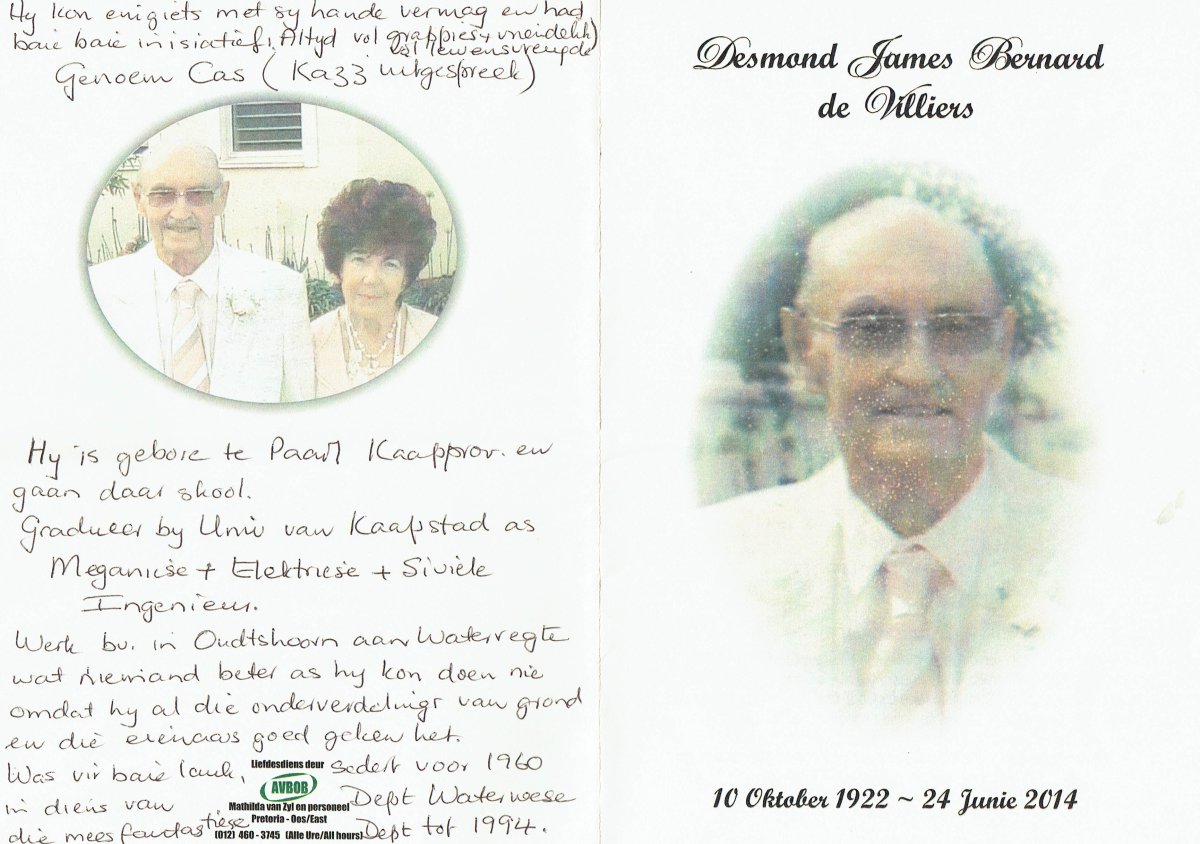 Hy kon enigiets met sy hande vermag en had
baie baie inisiatief, Altyd vol grappies + vriendelik)
vol lewensvreugde
Genoem Cas (Kazz uitgespreek)
Hy is gebore te Paarl Kaapprov. en
gaan daar skool.
Gradueer by Univ van Kaapstad as
Meganiese + Elektriese + Siviele
Ingenieur.
Werk bv. in Oudtshoorn aan Waterregte
wat niemand beter as hy kon doen nie
omdat hy al die onderverdelings van grond
en die eienaars goed geken het.
Was vir baie lank, sedert voor 1960
in diens van Dept Waterwese
die mees fantastiese Dept tot 1994.
Liefdesdiens deur
AVBOB
Mathilda van Zyl en personeel
Pretoria - Oos/East
(012) 460 - 3745 (Alle Ure/All hours)
Desmond James Bernard
de Villiers
10 Oktober 1922 ~ 24 Junie 2014